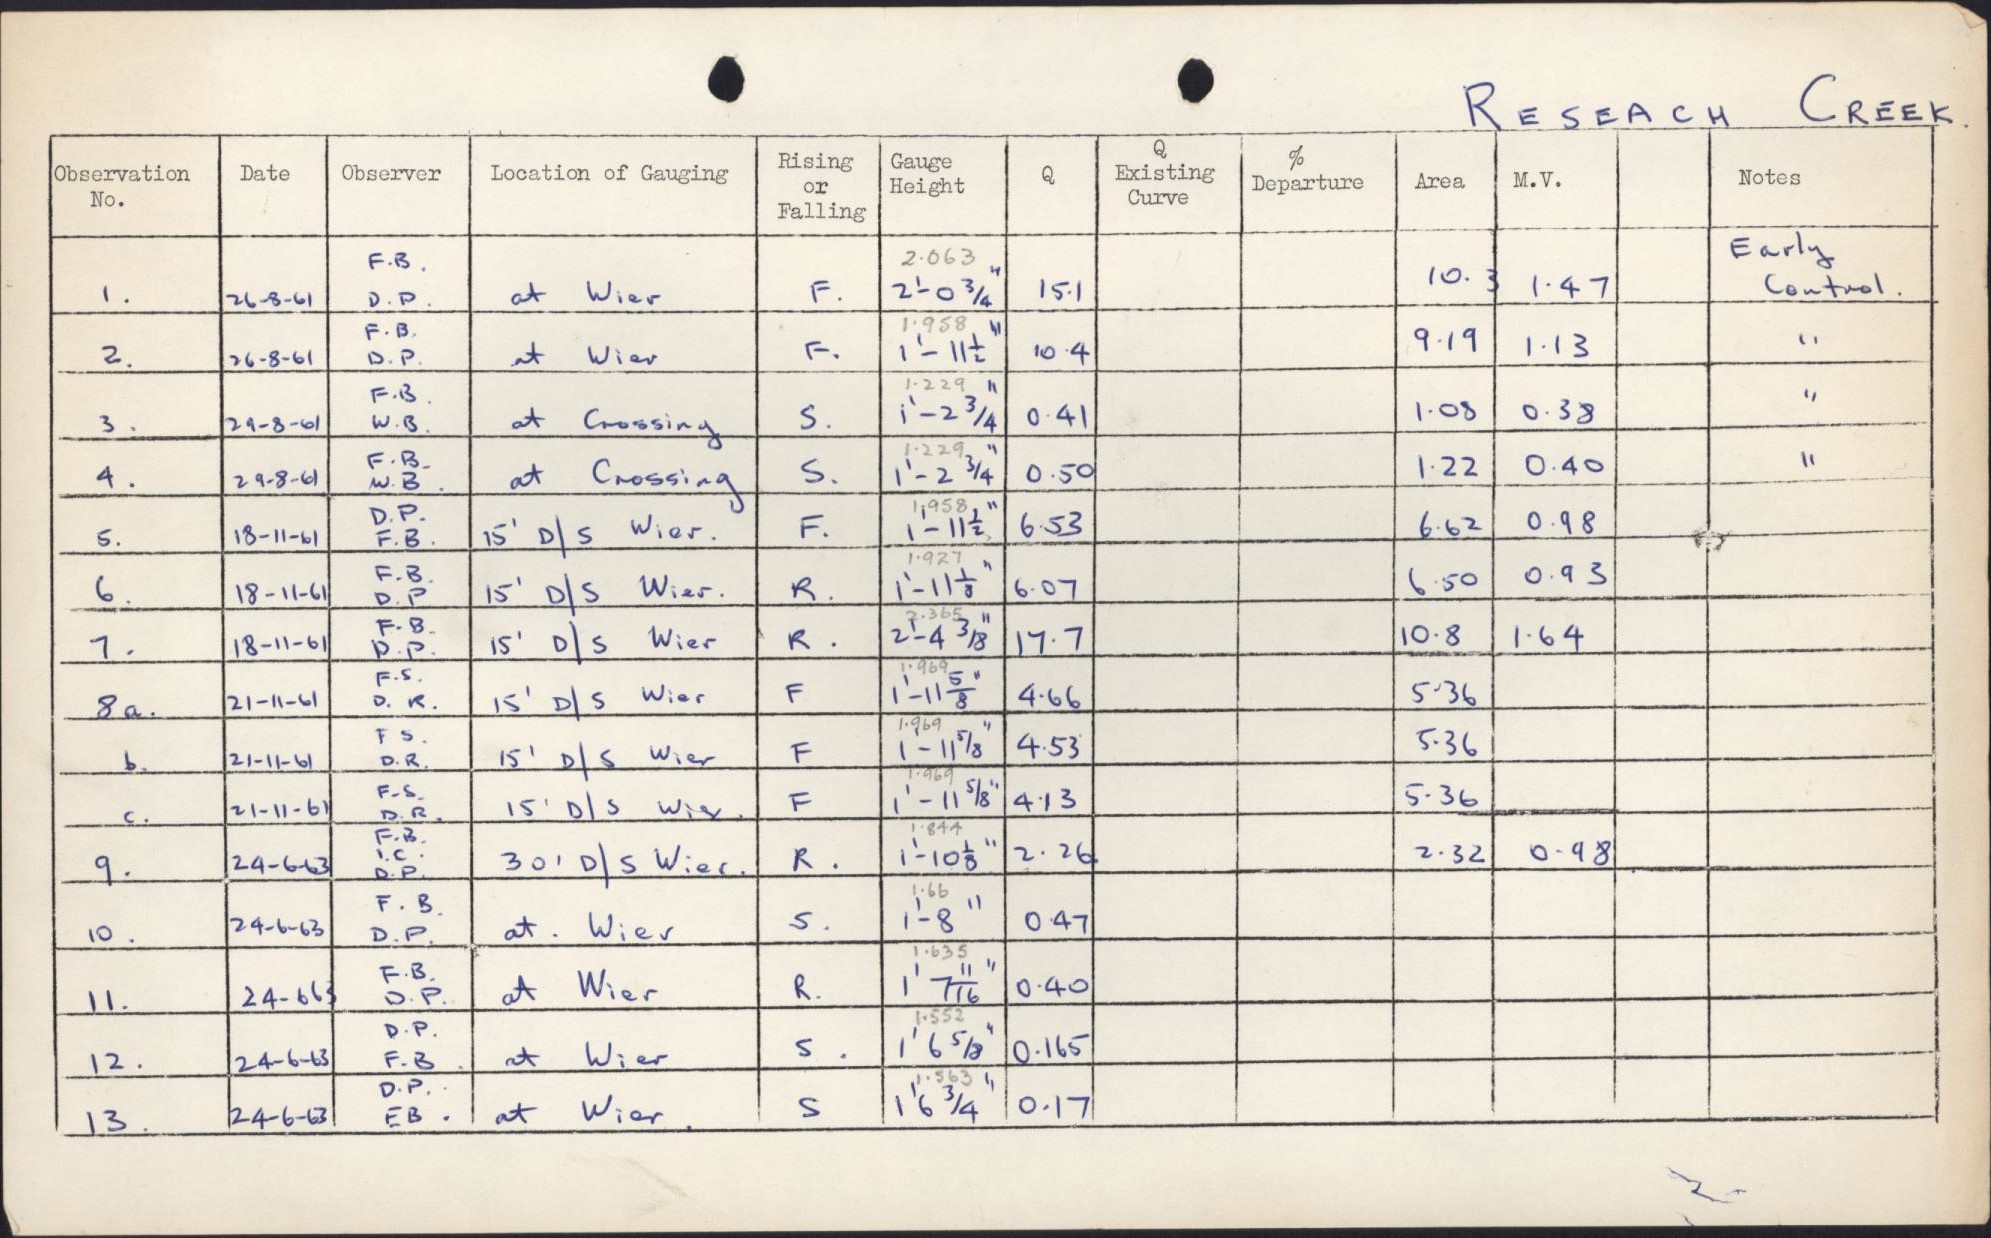 RESEACH CREEK.
Observation No. | Date | Observer | Location of Gauging | Rising or Falling | Gauge Height | Q | Q Existing Curve | % Departure | Area | M.V. | Notes
1. | 26-8-61 | F.B. D.P. | at Wier | F. | 2.063 2'-0 3/4" | 15.1 | 10.3 | 1.47 | Early Control.
2. | 26-8-61 | F.B. D.P. | at Wier | F. | 1.958 1'-11 1/2" | 10.4 | 9.19 | 1.13 | "
3. | 29-8-61 | F.B. W.B. | at Crossing | S. | 1.229 1'-2 3/4" | 0.41 | 1.08 | 0.38 | "
4. | 29-8-61 | F.B. W.B. | at Crossing | S. | 1.229 1'-2 3/4" | 0.50 | 1.22 | 0.40 | "
5. | 18-11-61 | D.P. F.B. | 15' D/S Wier. | F. | 1.958 1'-11 1/2" | 6.53 | 6.62 | 0.98
6. | 18-11-61 | F.B. D.P | 15' D/S Wier. | R. | 1.927 1'-11 1/8" | 6.07 | 6.50 | 0.93
7. | 18-11-61 | F.B. D.P. | 15' D/S Wier | R. | 2.365 2'-4 3/8" | 17.7 | 10.8 | 1.64
8a. | 21-11-61 | F.S. D.R. | 15' D/S Wier | F | 1.969 1'-11 5/8" | 4.66 | 5.36
b. | 21-11-61 | F S. D.R. | 15' D/S Wier | F | 1.969 1'-11 5/8" | 4.53 | 5.36
c. | 21-11-61 | F.S. D.R. | 15' D/S Wier. | F | 1.969 1'-11 5/8" | 4.13 | 5.36
9. | 24-6-63 | F.B. I.C. D.P. | 30' D/S Wier. | R. | 1.844 1'-10 1/8" | 2.26 | 2.32 | 0.98
10. | 24-6-63 | F.B. D.P. | at. Wier | S. | 1.66 1'-8" | 0.47
11. | 24-663 | F.B. D.P. | at Wier | R. | 1.635 1' 7 11/16" | 0.40
12. | 24-6-63 | D.P. F.B. | at Wier | S. | 1.552 1' 6 5/8" | 0.165
13. | 24-6-63 | D.P. EB. | at Wier. | S | 1.563 1'6 3/4" | 0.17